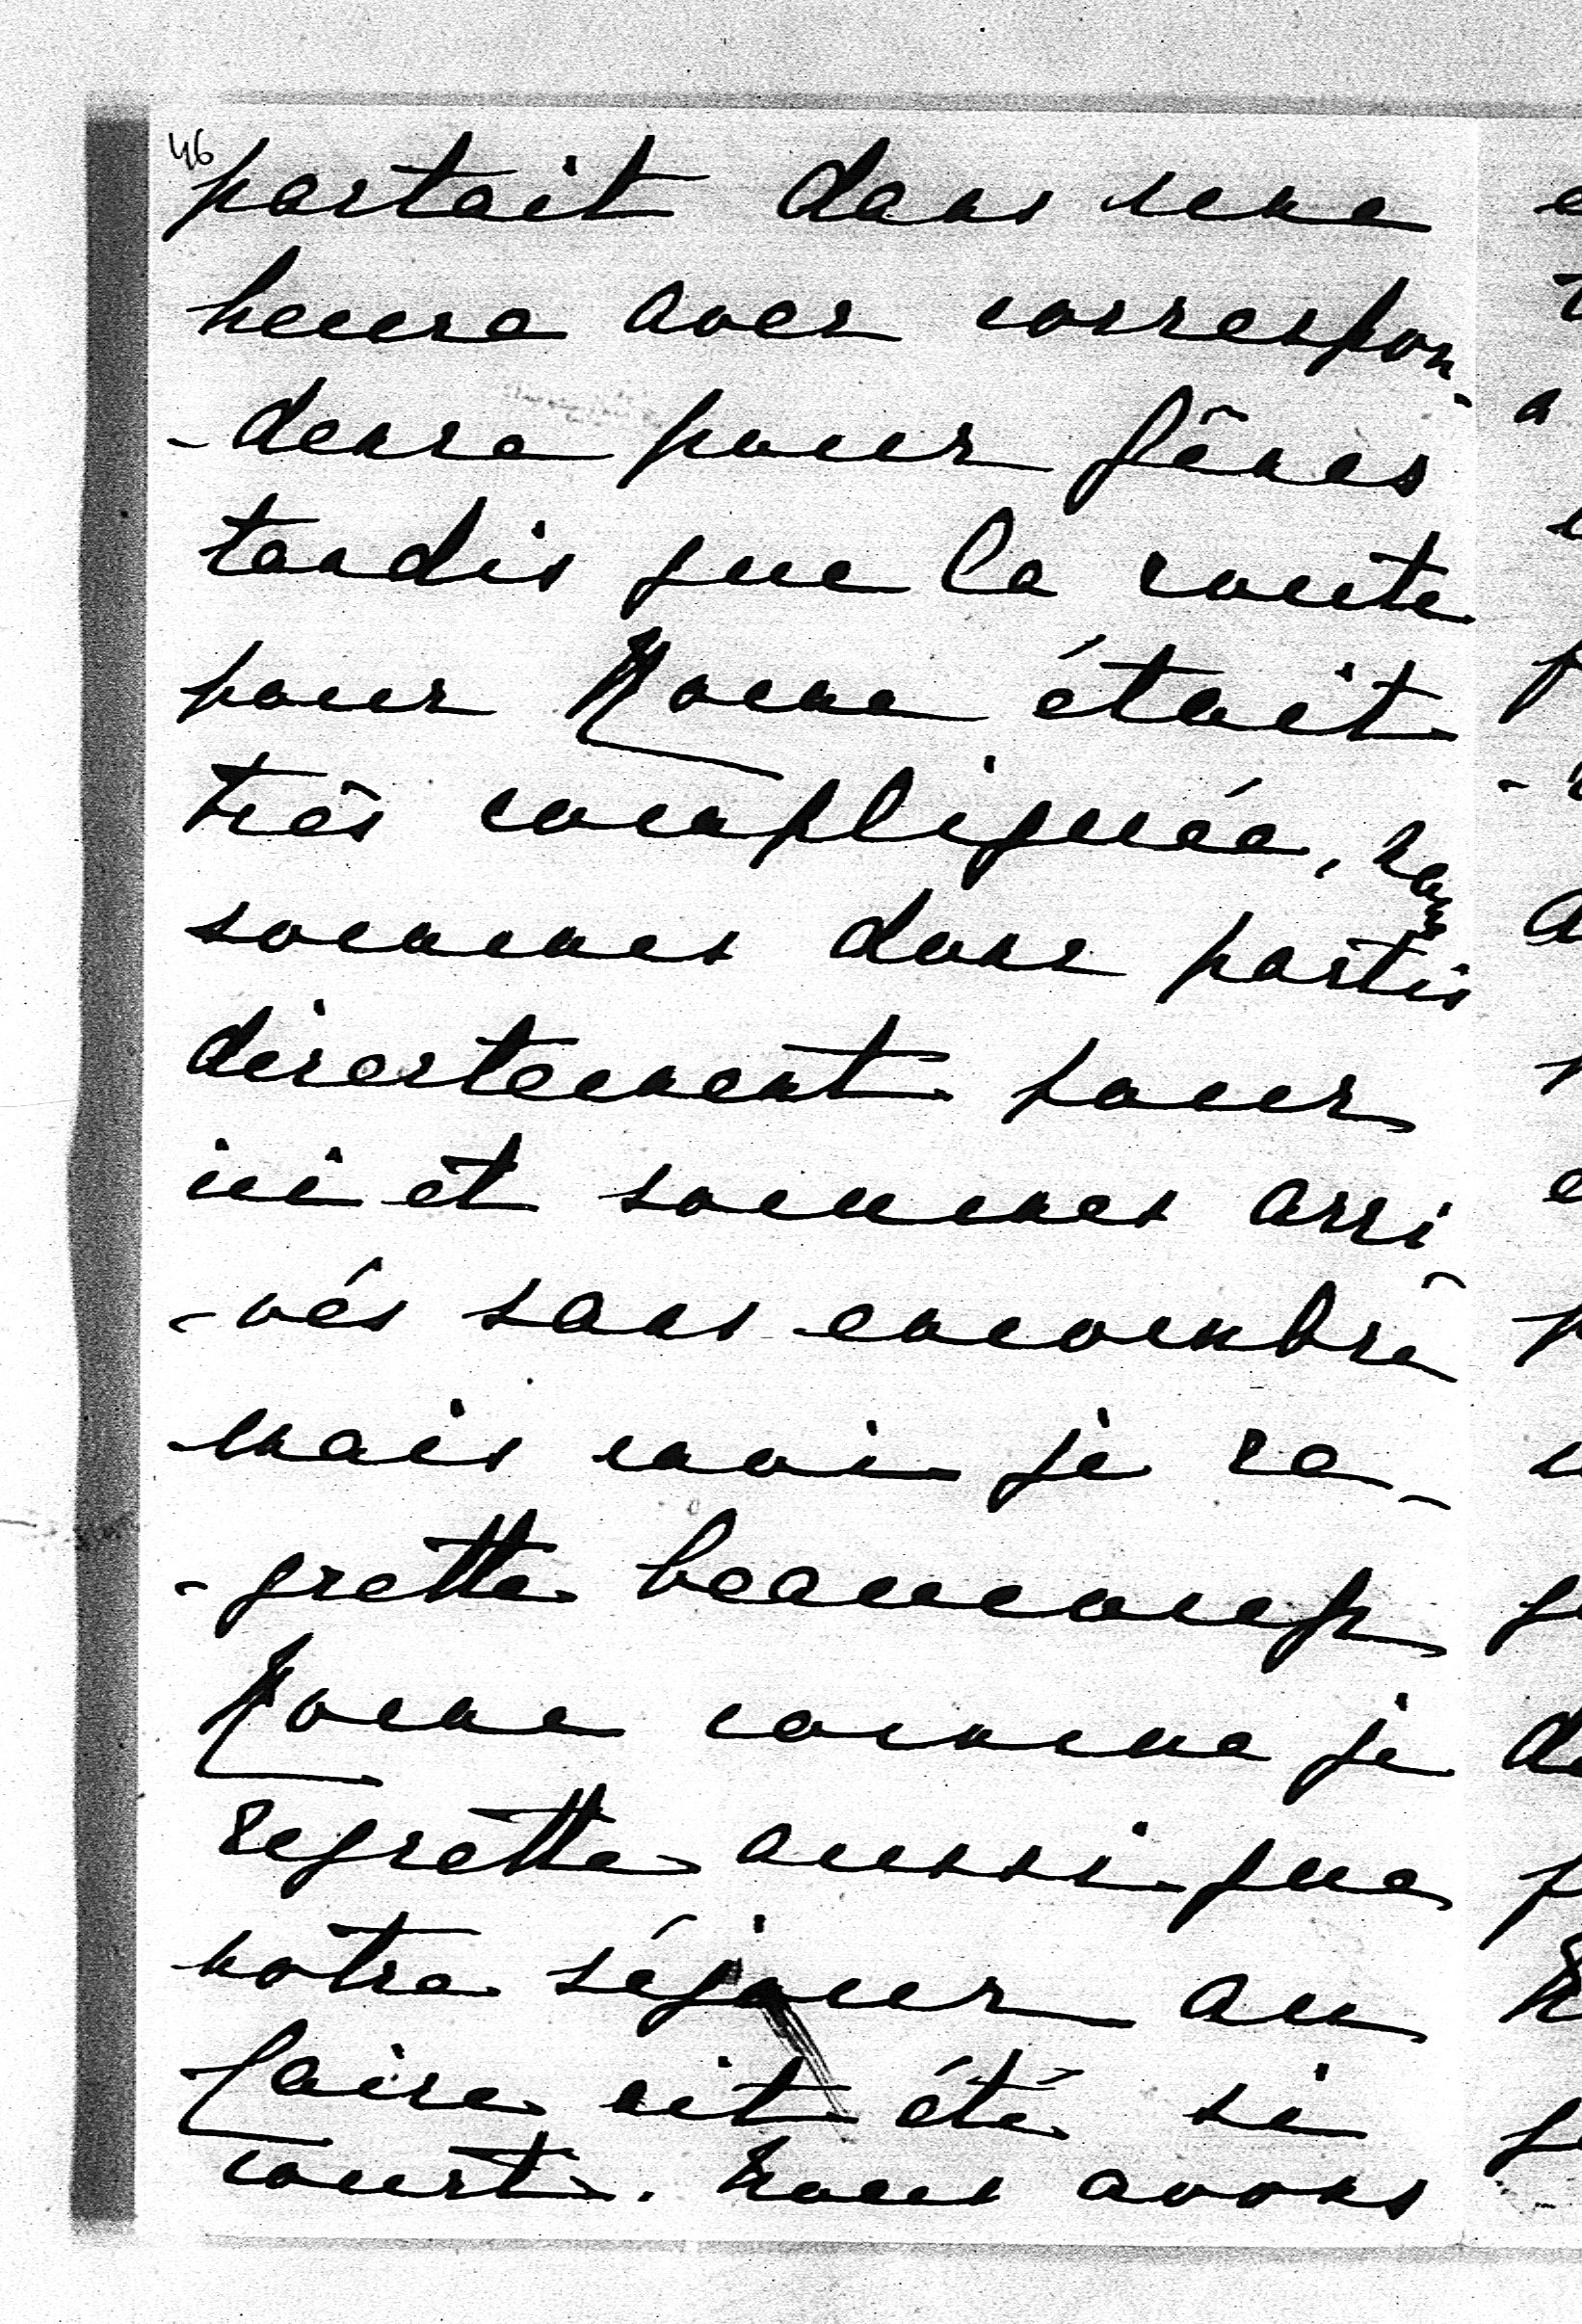 46
partait dans une
heure avec correspon-
-dence pour Gênes
tandis que la route
pour Rome était
très compliquée, nous
sommes donc partis
directement pour
ici et sommes arri
-vés sans encombre
mais moi je re-
-grette beaucoup
Rome comme je
regrette aussi que
notre séjour au
Caire ait été si
court. Nous avons